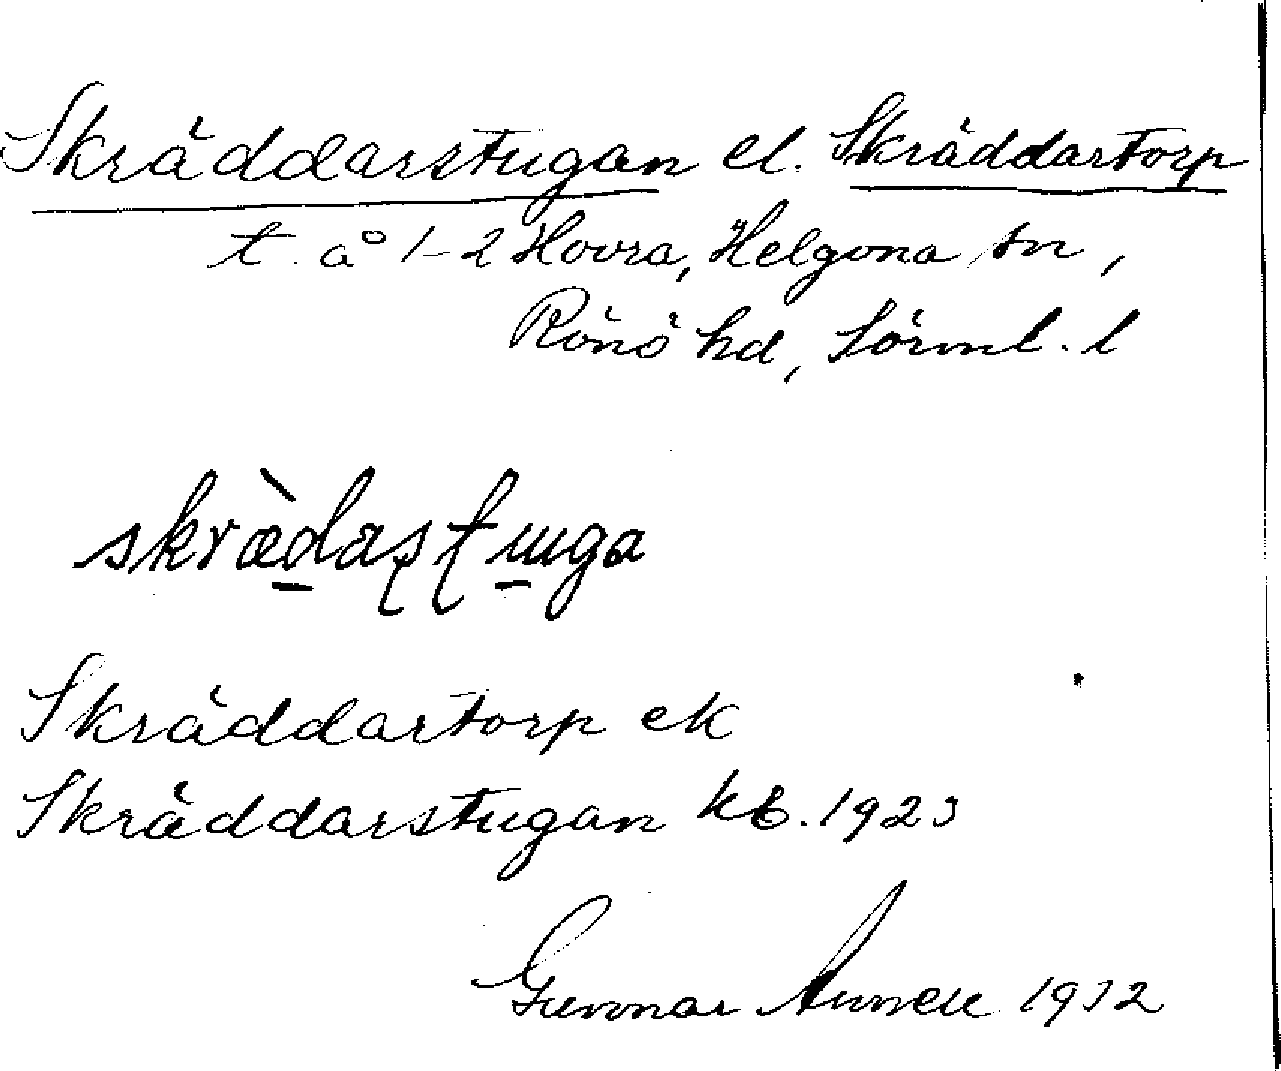 Skräddarstugan el. Skräddartorp
t. å 1-2 Hovra, Helgona sn,
Rönö hd, Sörml. l
Skräddartorp ek
Skräddarstugan kb. 1923
Gunnar 1932